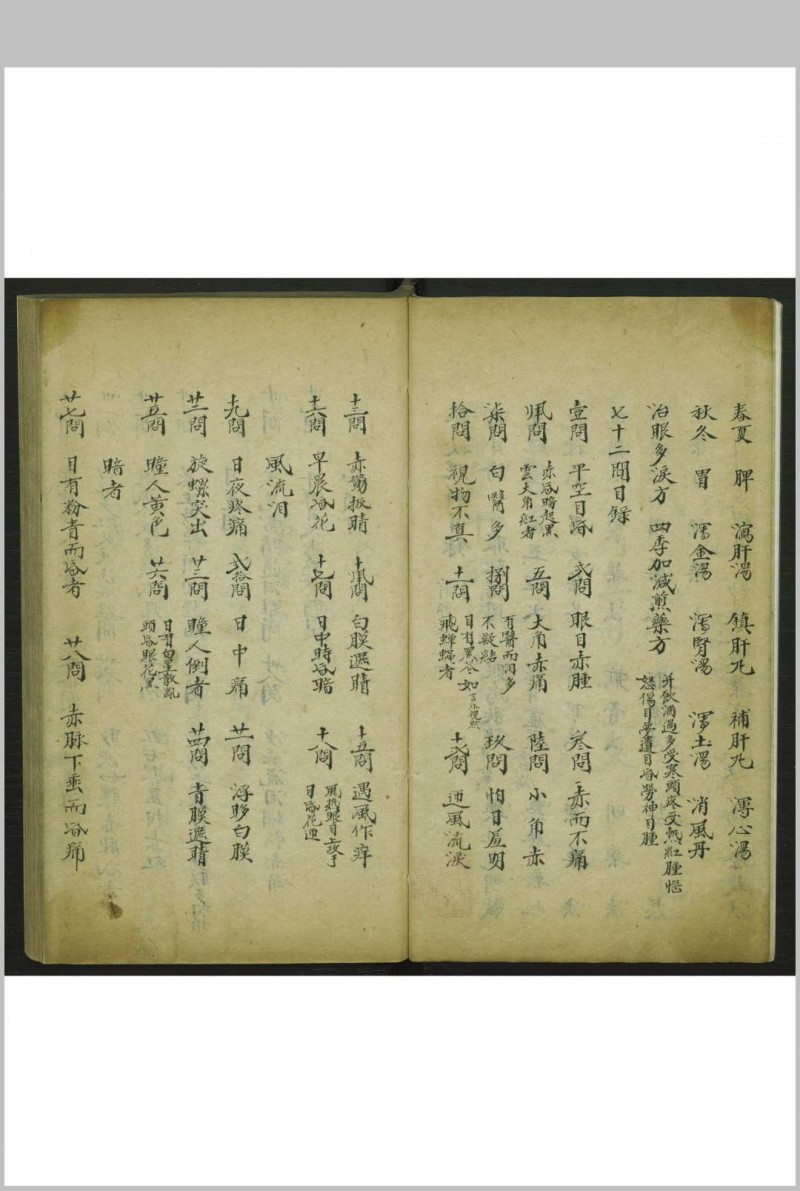 春夏 脾 瀉肝湯 鎮肝丸 補肝丸 瀉心湯
秋冬 胃 瀉金湯 瀉腎湯 瀉土湯 消風丹
治眼多淚方 四季加減煎藥方 并飲酒過多受寒頭疼受熱紅腫惱
怒傷目夢遺目昏勞神目腫
七十二問目錄
壹問 平空目昏 貳問 眼目赤腫 叁問 赤而不痛
肆問 赤昏暗起黑
雲大角紅者 五問 大角赤痛 陸問 小角赤
柒問 白醫多 捌問 有醫而泪多
不疑粘 玖問 怕日羞明
拾問 視物不真 十一問 目有黑花如
飛蟬蠅者 十二問 迎風流淚
十三問 赤筋扳睛 十四問 白膜遮睛 十五問 遇風作痒
十六問 早晨昏花 十七問 日中時昏暗 十八問
目昏花迎
風流泪
十九問 日夜疼痛 貳拾問 日中痛 廿一問 浮眵白膜
廿二問 旋螺突出 廿三問 瞳人倒者 廿四問 青膜遮睛
廿五問 瞳人黃色 廿六問 目有白星散亂
頭昏眼花黑
暗者
廿七問 目有粉青而昏者 廿八問 赤脉下垂而昏痛